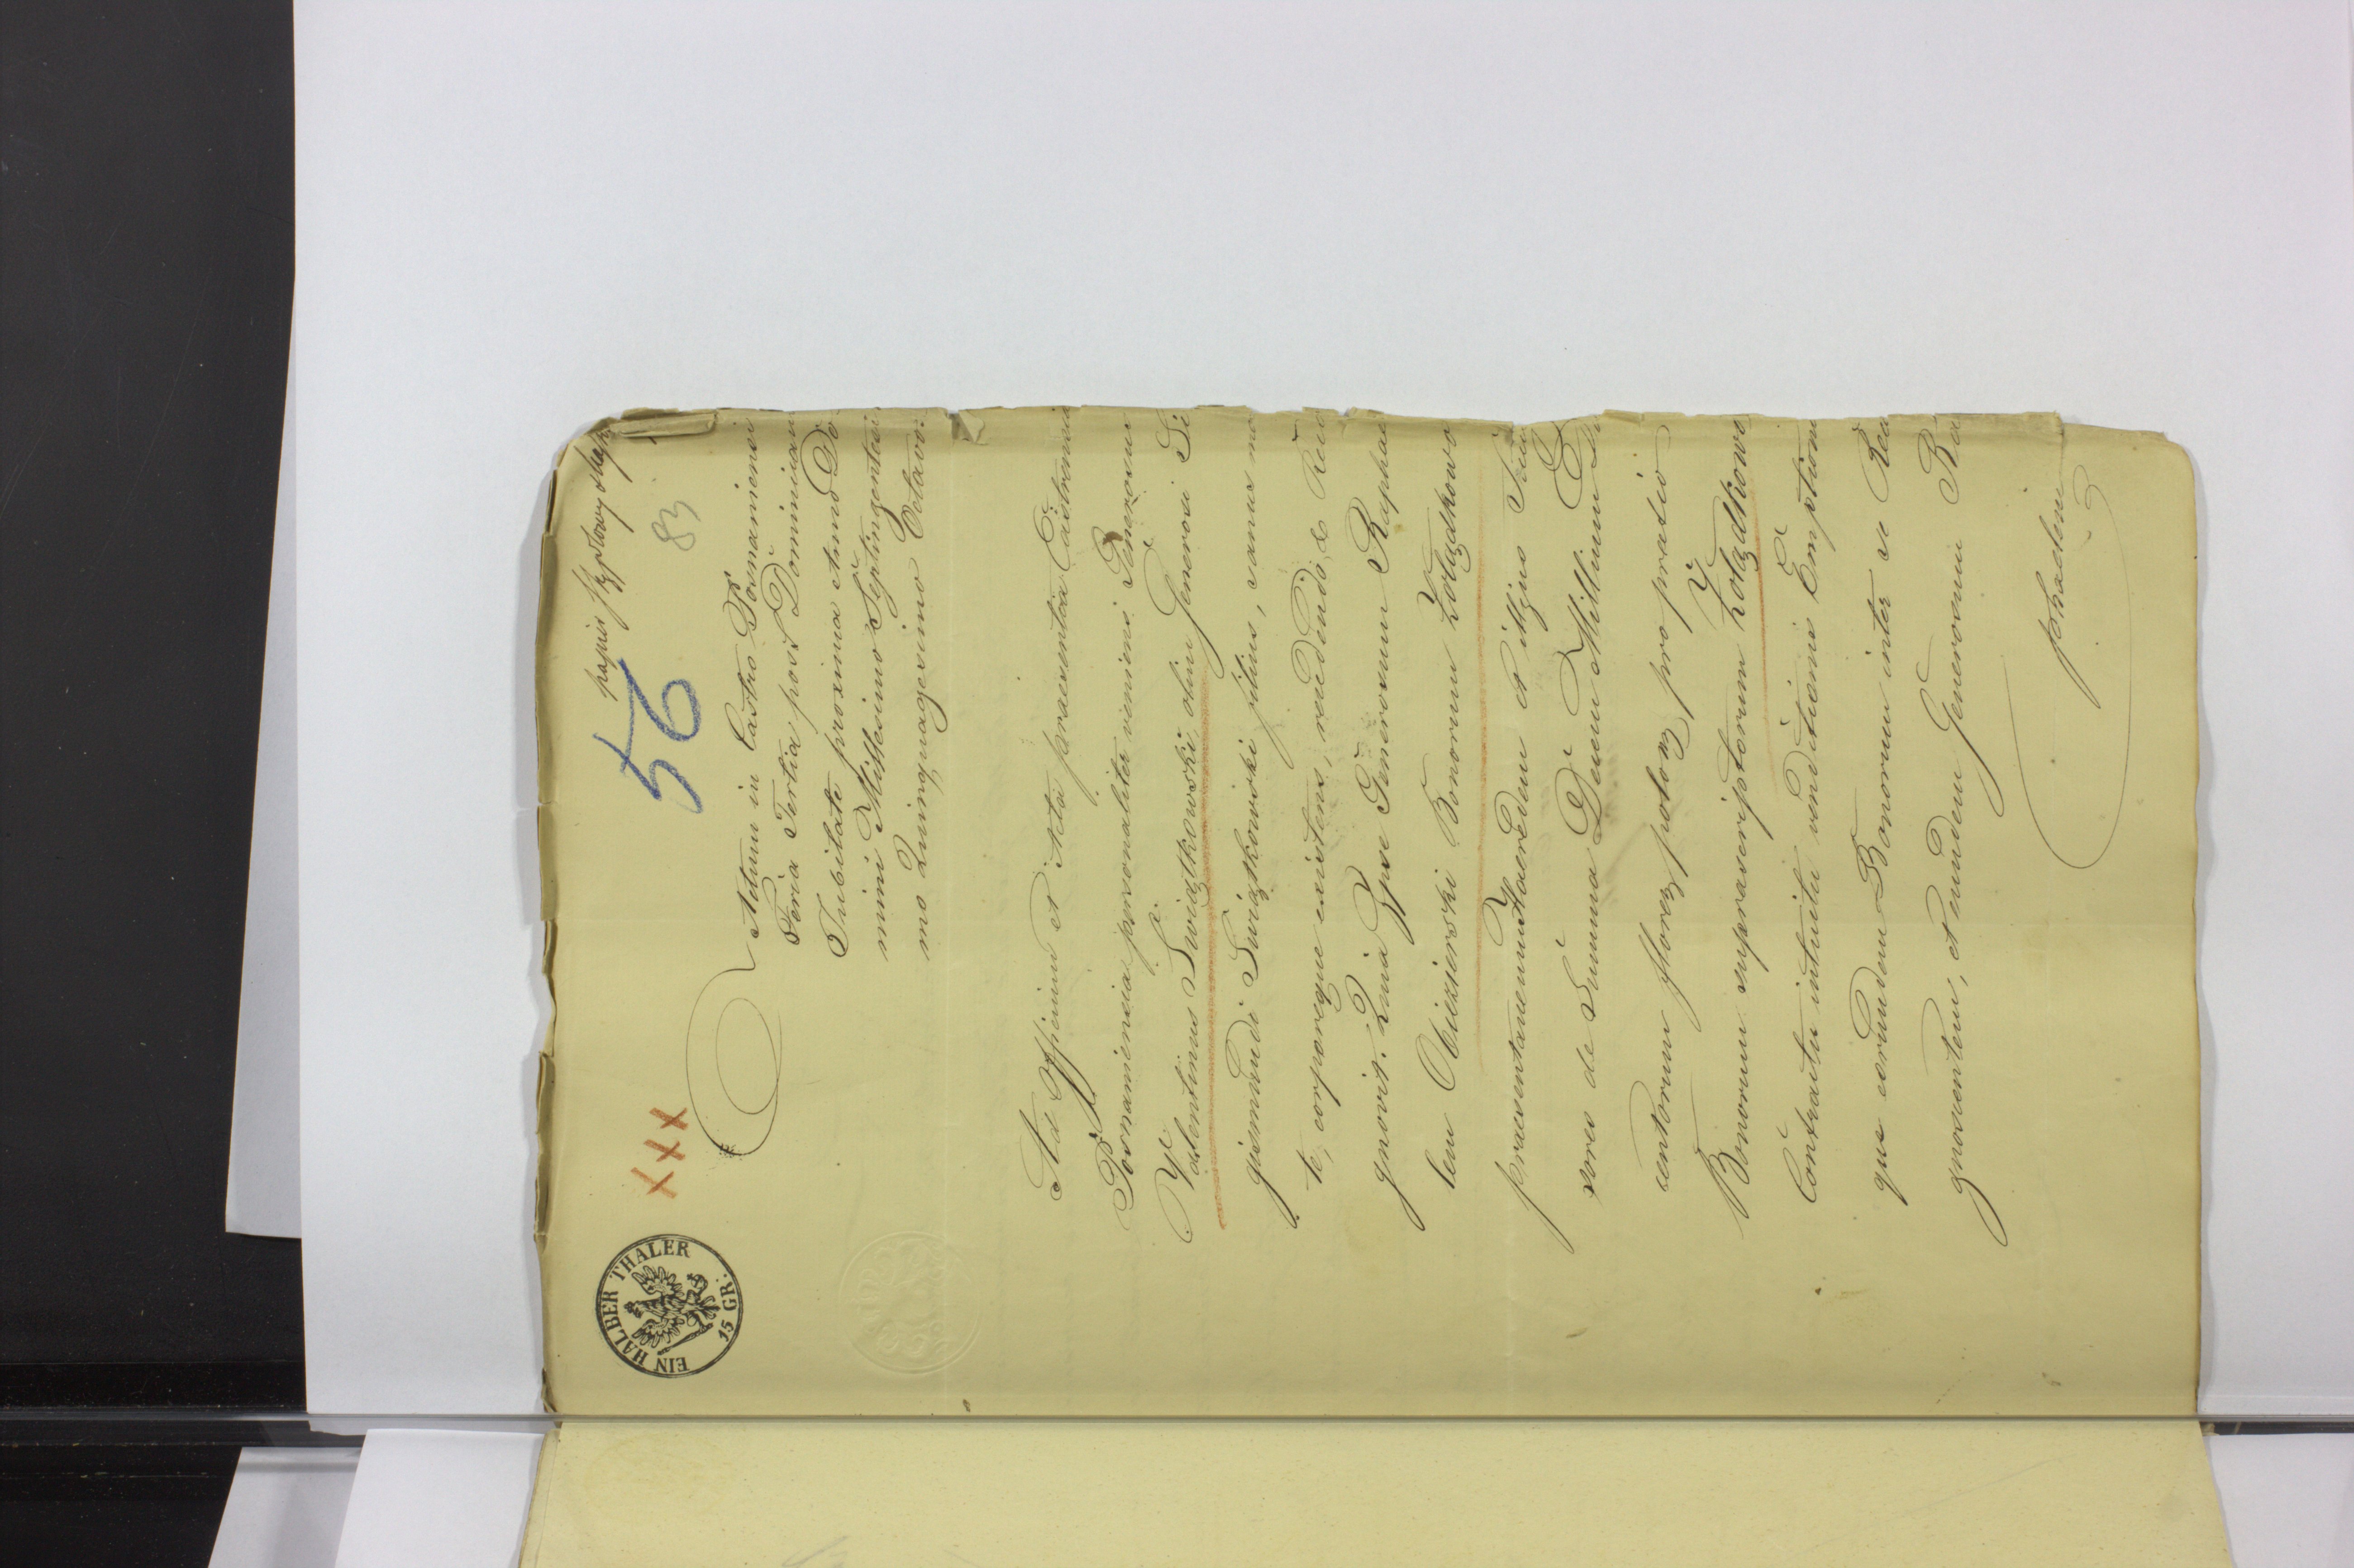 papier stęplowy
56
83
XXX
EIN HALBER THALER
15 GR:
Actum in Castro Posnaniensi
Feria Tertia post Dominicam
Jubilate proxima Anno Do
mini Millesimo Septingentesi
mo Quinquagesimo Octavo.
Ad Officium et Acta praesentia Castrensia
Posnaniensia personaliter veniens Generosus
Valentinus Swiątkowski, olim Generosi Si
gismundi Swiątkowski filius, sanus men
te, corporeque existens, residendo, et Reco
gnovit. Quia Ipse Generosum Rapha
lem Obiezierski Bonorum Żołądkowo
praesentaneum Haeredem et illius Succes
sores de Summa Decem Millium
centorum florenz. polonz. pro pretio
Bonorum suprascriptorum Żołądkowo
Contractu intuitu venditionis Emptionis
que eorundem Bonorum inter se Rea
gnoscentem, et eundem Generosum Ra
phaelem